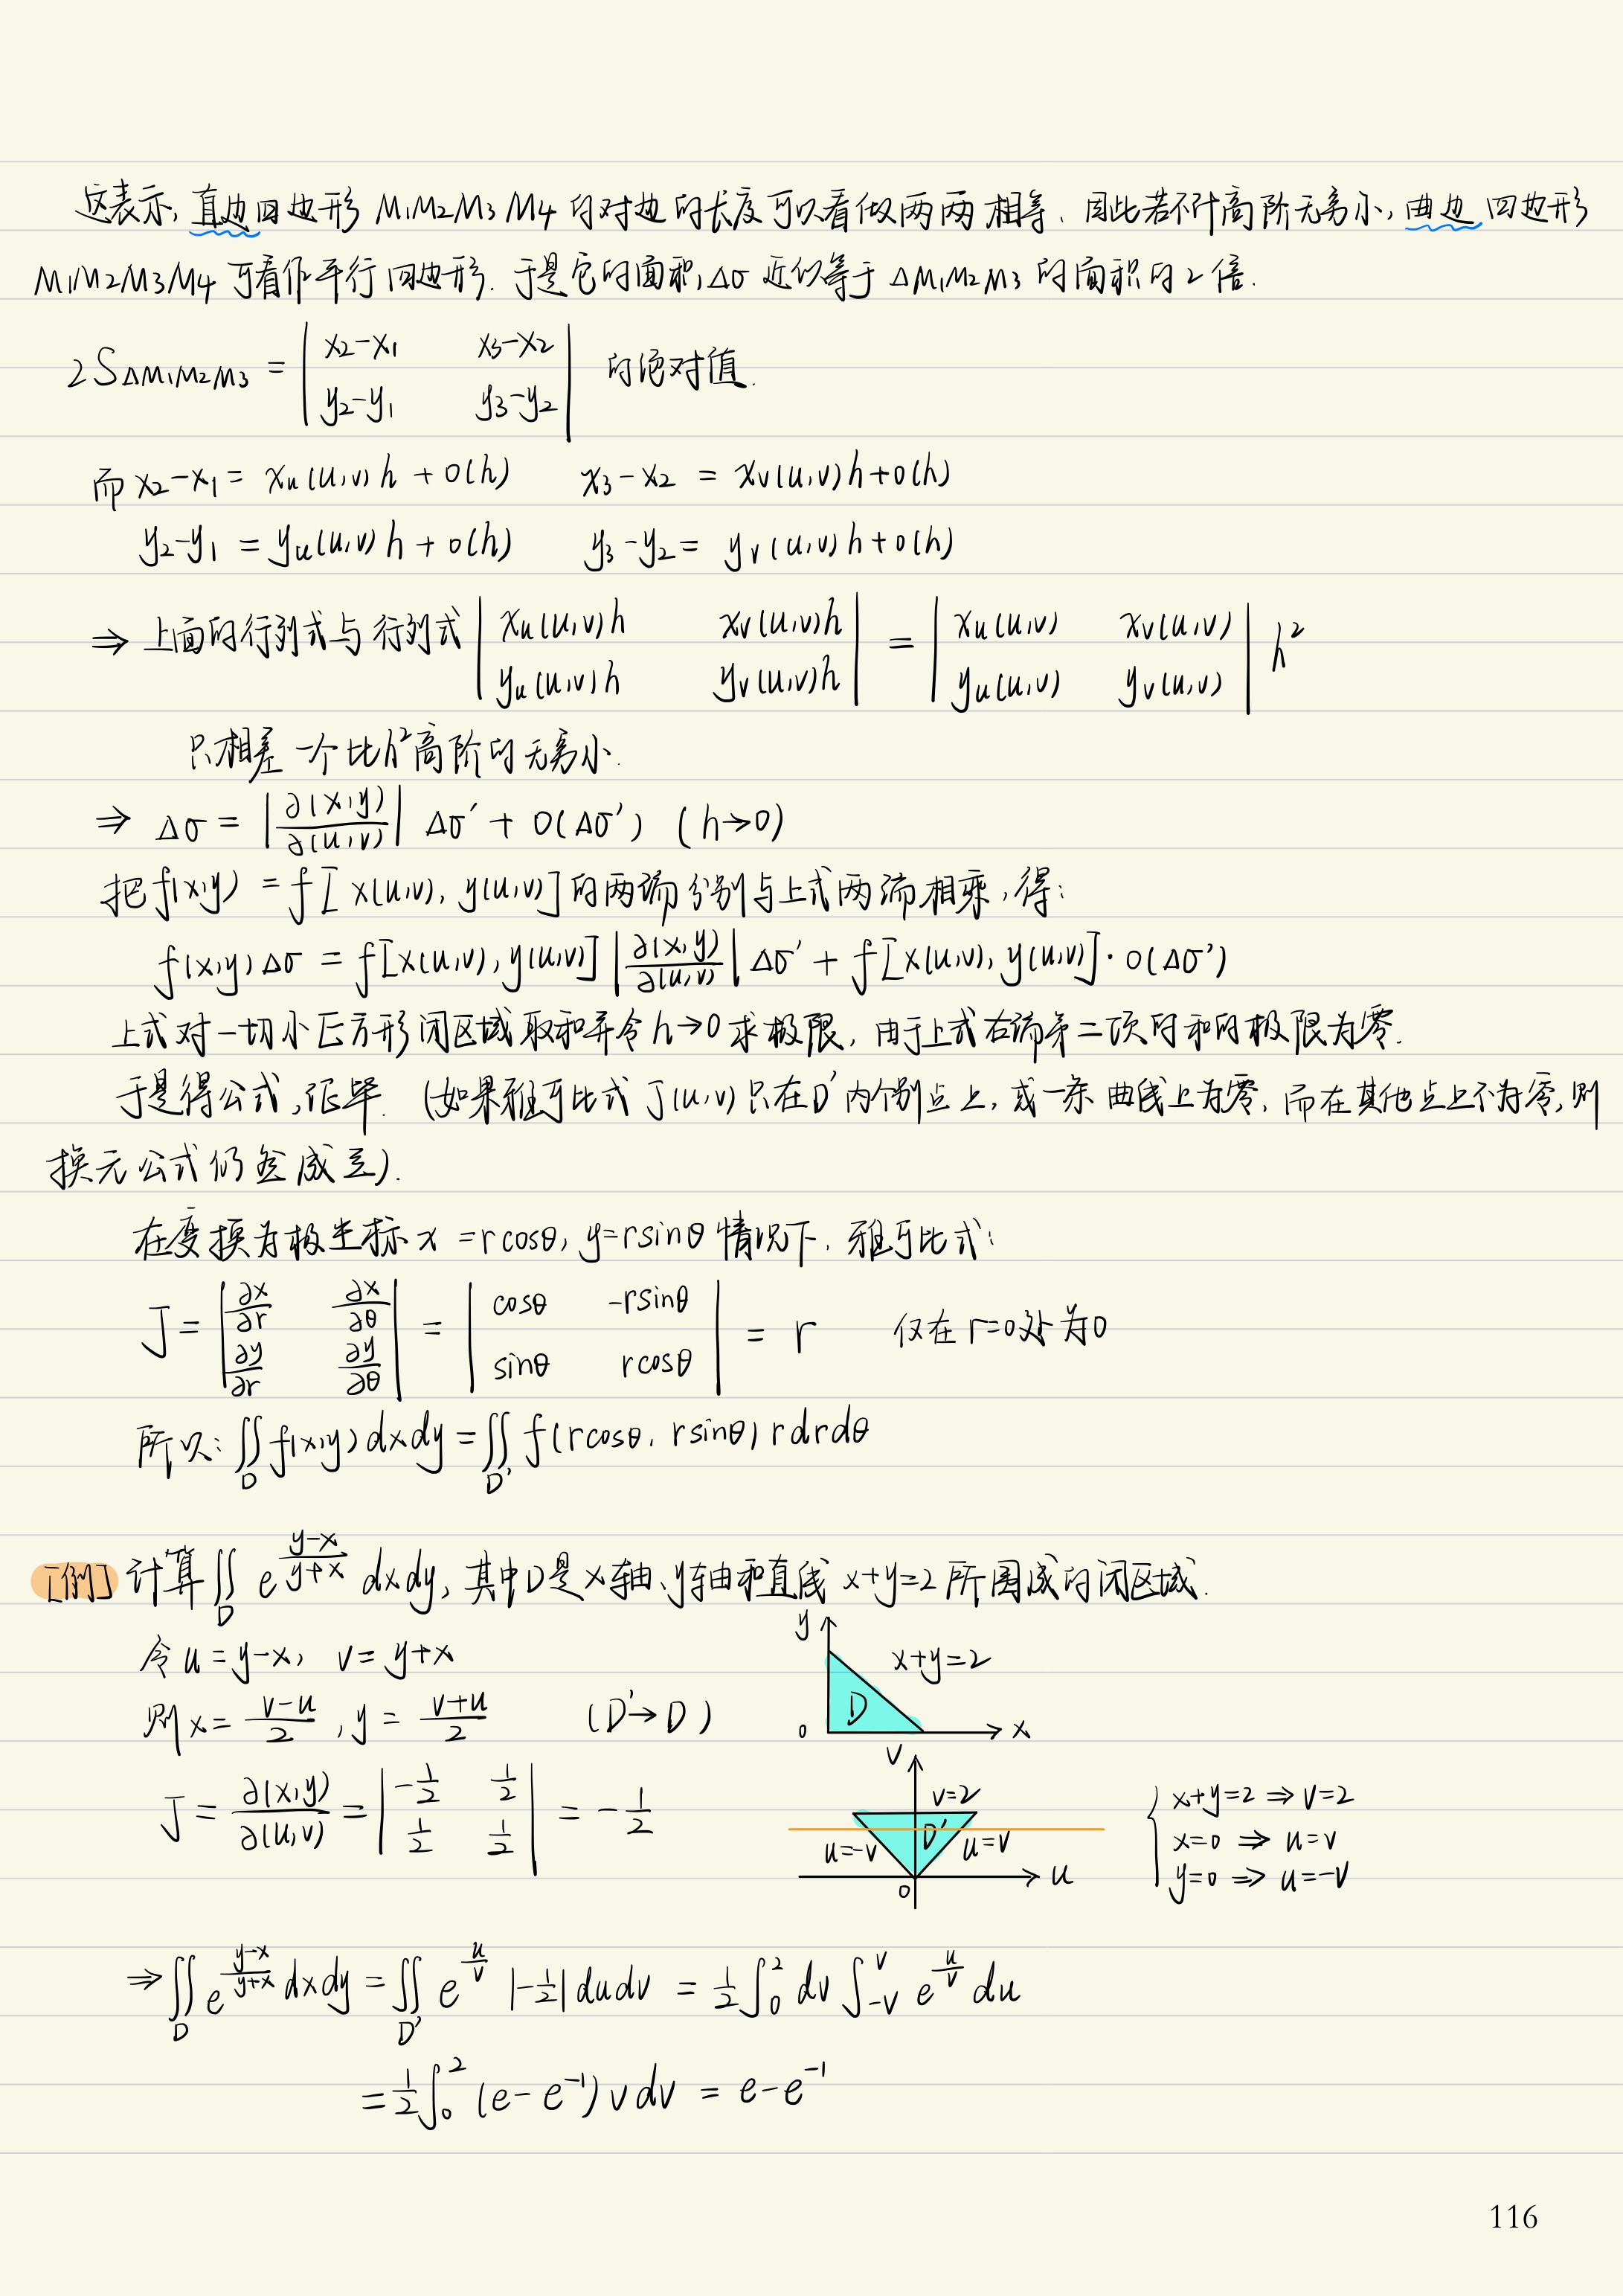 这表示, 直边四边形 M₁M₂M₃M₄ 的对边的长度可以看做两两相等. 因此若不计高阶无穷小, 曲边四边形
M₁M₂M₃M₄ 可看作平行四边形. 于是它的面积Δσ 近似等于 ΔM₁M₂M₃ 的面积的2倍.
2S△M₁M₂M₃ = | x₂-x₁  x₃-x₂ ; y₂-y₁  y₃-y₂ | 的绝对值.
而 x₂-x₁ = xᵤ(u,v)h + o(h)  x₃-x₂ = xᵥ(u,v)h+o(h)
y₂-y₁ = yᵤ(u,v)h + o(h)  y₃-y₂ = yᵥ(u,v)h+o(h)
⇒ 上面的行列式与行列式 | xᵤ(u,v)h  xᵥ(u,v)h ; yᵤ(u,v)h  yᵥ(u,v)h | = | xᵤ(u,v)  xᵥ(u,v) ; yᵤ(u,v)  yᵥ(u,v) | h²
只相差一个比h²高阶的无穷小.
⇒ Δσ = |∂(x,y)/∂(u,v)| Δσ′ + o(Δσ′) (h→0)
把 f(x,y) = f[x(u,v), y(u,v)] 的两端分别与上式两端相乘, 得:
f(x,y)Δσ = f[x(u,v), y(u,v)] |∂(x,y)/∂(u,v)| Δσ′ + f[x(u,v), y(u,v)]·o(Δσ′)
上式对一切小正方形闭区域取和并令h→0求极限, 由于上式右端第二项的和的极限为零.
于是得公式, 证毕. (如果雅可比式 J(u,v) 只在D′内个别点上, 或一条曲线上为零, 而在其他点上不为零, 则
换元公式仍然成立).
在变换为极坐标 x = rcosθ, y=rsinθ 情况下, 雅可比式:
J = | ∂x/∂r  ∂x/∂θ ; ∂y/∂r  ∂y/∂θ | = | cosθ  -rsinθ ; sinθ  rcosθ | = r  仅在r=0处为0
所以: ∬_D f(x,y)dxdy = ∬_D′ f(rcosθ, rsinθ) rdrdθ
[例] 计算∬_D e^((y-x)/(y+x)) dxdy, 其中D是x轴、y轴和直线 x+y=2 所围成的闭区域.
令u=y-x, v=y+x
则x = (v-u)/2, y = (v+u)/2  (D′→D)
y
x+y=2
D
0
x
J = ∂(x,y)/∂(u,v) = | -1/2  1/2 ; 1/2  1/2 | = -1/2
v
v=2
D′
u=-v
u=v
u
0
{ x+y=2 ⇒ v=2
x=0 ⇒ u=v
y=0 ⇒ u=-v
⇒ ∬_D e^((y-x)/(y+x)) dxdy = ∬_D′ e^(u/v) |-1/2| dudv = 1/2 ∫₀² dv ∫₋ᵥᵛ e^(u/v) du
= 1/2 ∫₀² (e-e⁻¹) v dv = e-e⁻¹
116